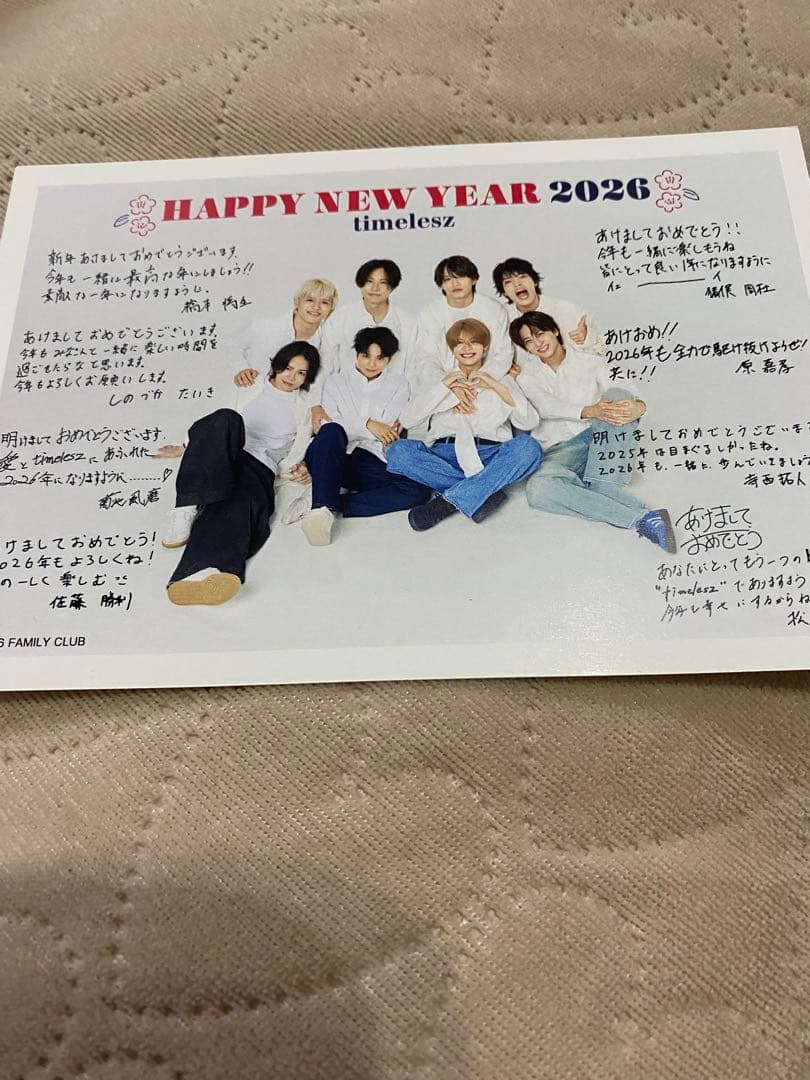 HAPPY NEW YEAR 2026
timelesz
新年あけましておめでとうございます。
今年も一緒に最高な年にしましょう!!
素敵な一年になりますように。
橋本 将生
あけましておめでとうございます。
今年もみなさんと一緒に楽しい時間を
過ごせたらなと思います。
今年もよろしくお願いします。
しのづか たいき
明けましておめでとうございます。
愛とtimeleszにあふれた
2026年になりますように………♡
菊池風磨
けましておめでとう!
026年もよろしくね!
のーしく楽しむ
佐藤 勝利
6 FAMILY CLUB
あけましておめでとう!!
今年も一緒に楽しもうね
皆にとって良い1年になりますように
猪俣 周杜
あけおめ!!
2026年も全力で駆け抜けようぜ!
共に!!
原 嘉孝
明けましておめでとうございます
2025年は目まぐるしかったね。
2026年も、一緒に歩んでいきましょう
寺西拓人
あけまして
おめでとう
あなたにとってもう一つの
"timelesz"でありますよう
今年も幸せにするからね
松